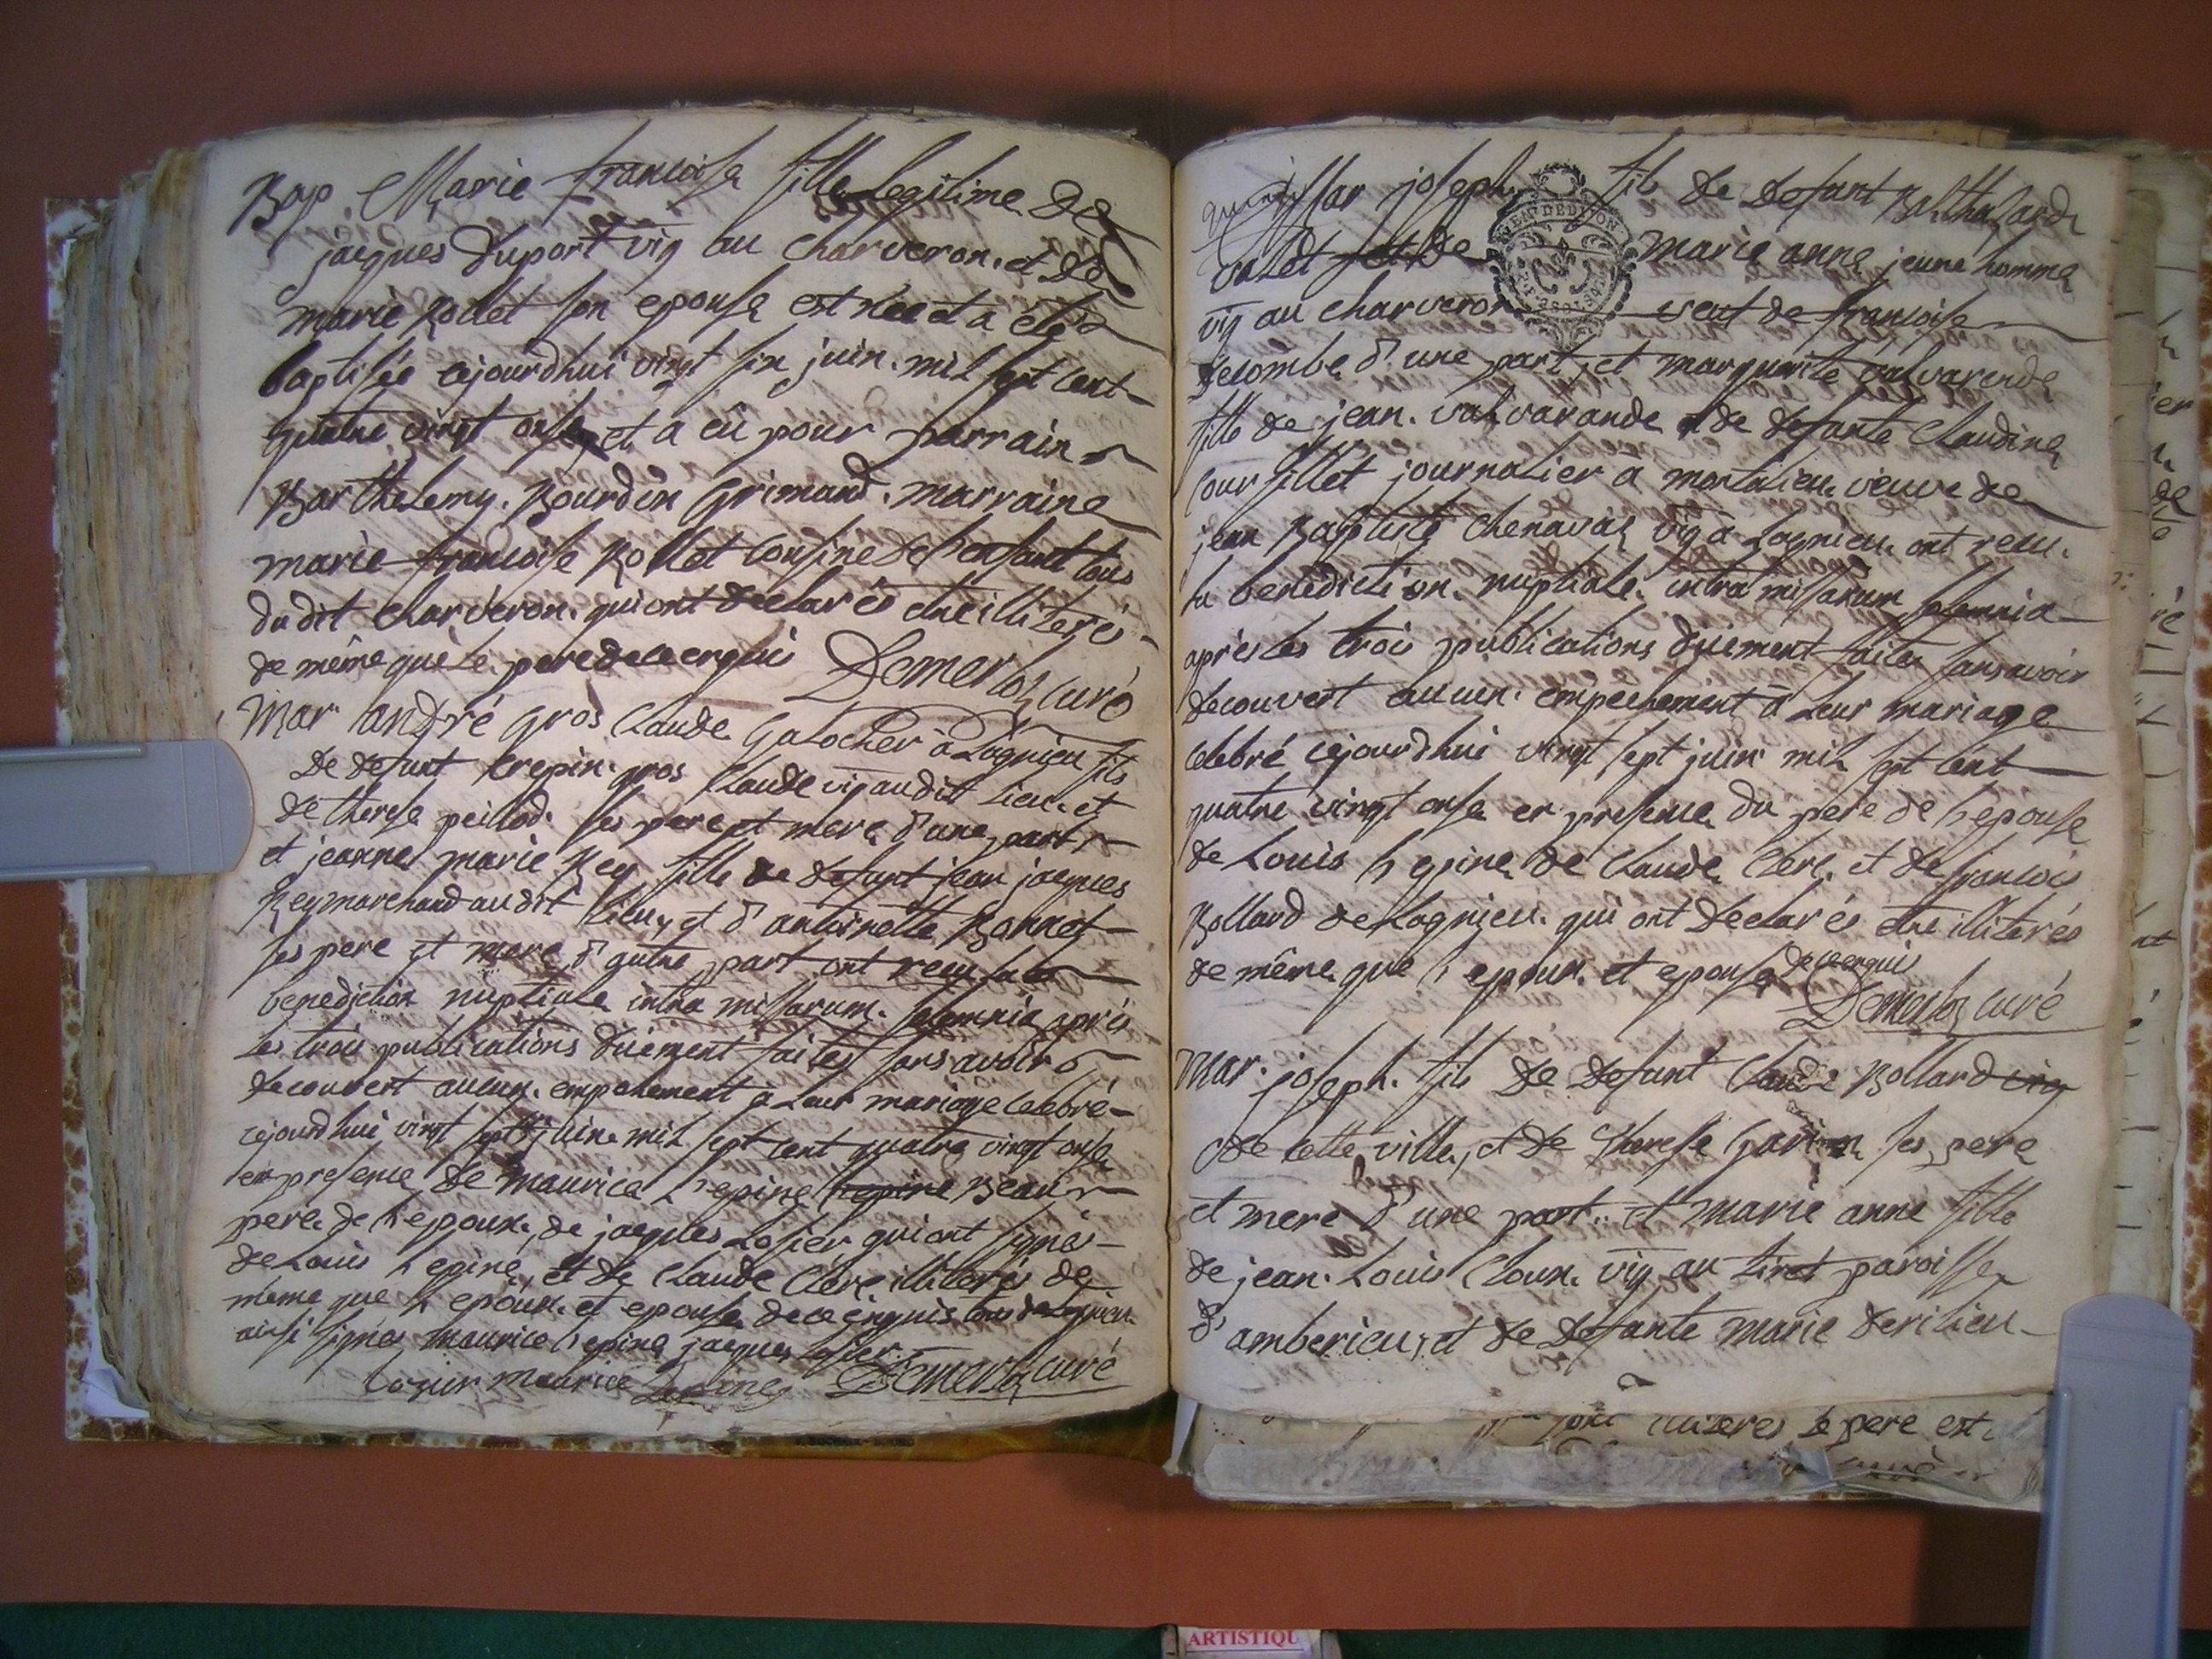 Bap Marie francoise fille Legitime de
jacques duport vig au charveron. et de
marie Rollet son epouse est née et a eté
baptisée cejourdhui vingt six juin. mil sept cent
quatre vingt onse et a eû pour parrain
Barthelemy. Bourdin Grimaud. marraine
marie francoise Rollet cousine de l'enfant tous
du dit charveron. qui ont declarés etre illiterés
de même què le pere de ce enquis Demerloz curé
Mar andré Gros Claude Galocher à Lagnieu fils
de defunt Crepin. gros Claude vig audit Lieu. et
de therese peillod. ses pere et mere d'une part
et jeanne marie Rey fille de defunt jean jacques
Rey marchand audit Lieu, et d'antoinette Bonnet
ses pere et mere d'autre part ont recu la
benediction nuptiale intra missarum. solemnia après
les trois publications düement faites sans avoir
decouvert aucun. empechement a Leur mariage celebré
cejourdhui vingt sept juin mil sept cent quatre vingt onse
en presence de maurice L'epine Lepine Beau
pere. de l'epoux. de jacques Losier qui ont signés
de Louis L'epine et de Claude Clerc. illiterés de
meme que l'epoux. et epouse de ce enquis tous de Lagnieu
ainsi signés maurice L'epine jacques Losier.
Lozier maurice Lepine Demerloz curé
Mar joseph fils de defunt Balthazard
valet et de Marie anne jeune homme
vig au charveron veuf de francoise
Decombe d'une part, et marguerite valvarande
fille de jean. valvarande et de defunte Claudine
Courtillet journalier à montalieu veuve de
jean Baptiste Chenavas vig à Lagnieu. ont recu.
la benediction. nuptiale. intra missarum solemnia
après les trois publications düement faites sans avoir
decouvert aucun. empechement à Leur mariage
celebré cejourdhui vingt sept juin mil sept cent
quatre vingt onse en presence du pere de l'epouse
de Louis L'epine de Claude Clerc. et de francois
Bollard de Lagnieu. qui ont declarés etre illiterés
de même que l'epoux. et epouse de ce enquis
Demerloz curé
Mar. joseph. fils de defunt Claude Bollard vig
de cette ville, et de therese Garin ses pere
et mere d'une part. et marie anne fille
de jean. Louis Cloux. vig au tiret paroisse
d'amberieu, et de defunte Marie derilieu
illiteres le pere est
ARTISTIQU